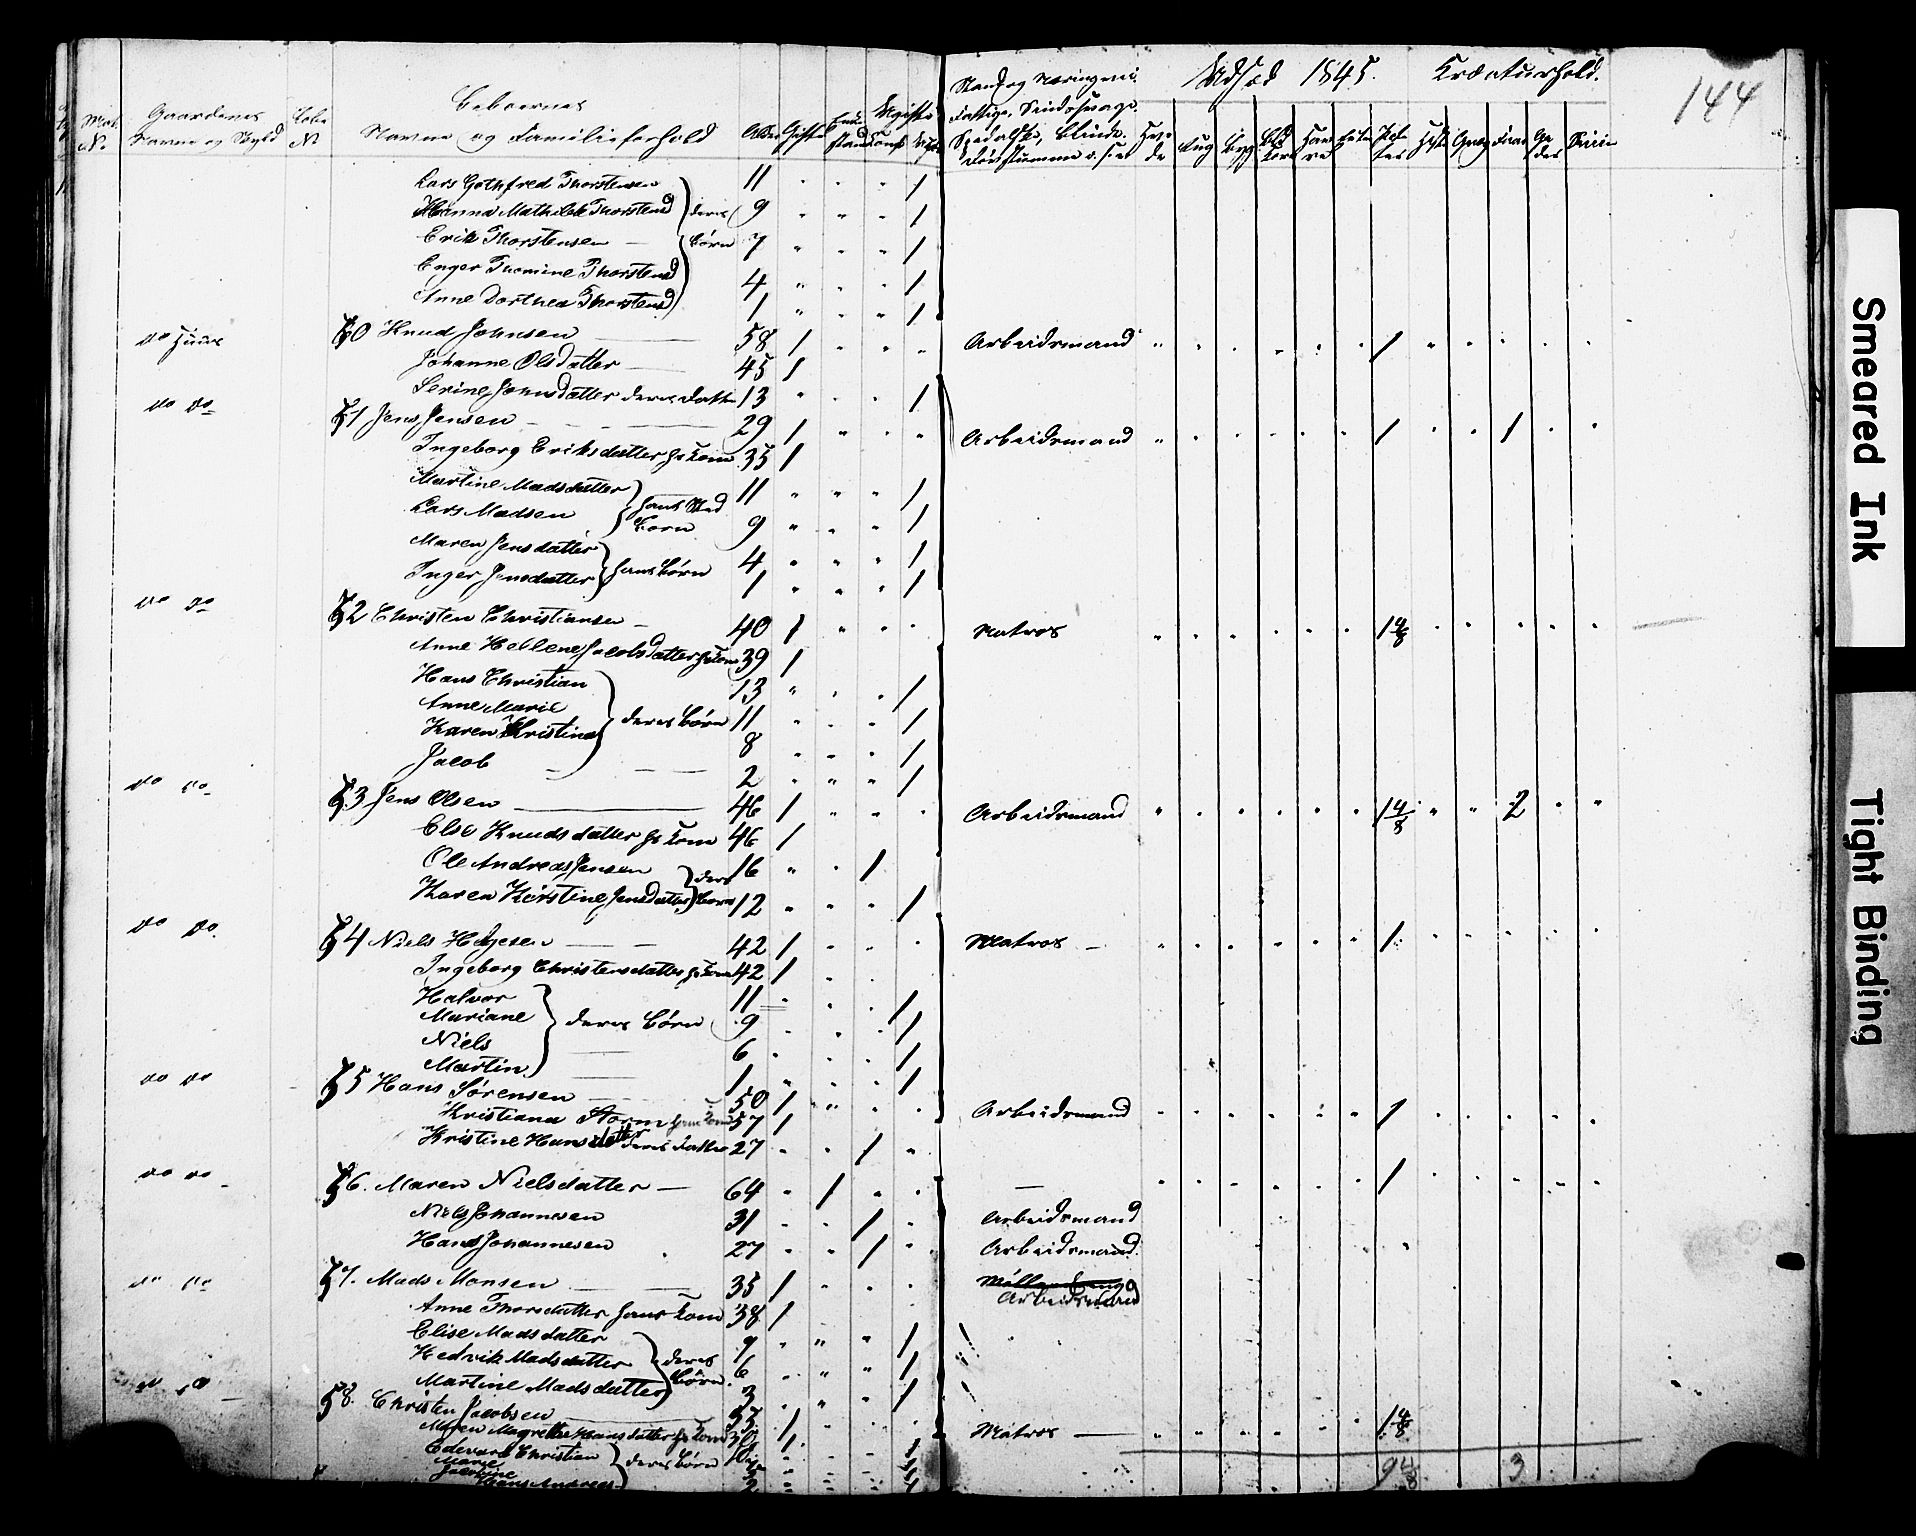 144
Udsæd 1845. Kreaturhold.
Gaardenes Navne og Skyld
Beboernes Navne og Familieforhold
Lars Gothfred Thorstensen 11 1
Hanna Mathilde Thorstensd 9 1
Erik Thorstensen 7 1
deres Børn
Enger Thomine Thorstensd 4 1
Anne Dorthea Thorstensd 1 1
do Huus 50 Knud Johnsen 58 1 Arbeidsmand 1
Johanne Olsdatter 45 1
Serine Johnsdatter deres Datter 13 1
do do 51 Jens Jensen 29 1 Arbeidsmand 1 1
Ingeborg Eriksdatter hs Kone 35 1
Martine Madsdatter 11 1
Lars Madsen 9 1
hans Sted Børn
Maren Jensdatter 4 1
Inger Jensdatter 1 1
hans Børn
do do 52 Christen Christiansen 40 1 Matros 1 4/8
Anne Hellene Jacobsdatter hs Kone 39 1
Hans Christian 13 1
Anne Marie 11 1
deres Børn
Karen Kristine 8 1
Jacob 2 1
do do 53 Jens Olsen 46 1 Arbeidsmand 1 4/8 2
Else Knudsdatter hs Kone 46 1
Ole Andreas Jensen 16 1
Karen Kirstine Jensdatter 12 1
deres Børn
do do 54 Niels 42 1 Matros 1
Ingeborg Christensdatter hs Kone 42 1
Halvor 11 1
Mariane 9 1
deres Børn
Niels 6 1
Martin 1 1
do do 55 Hans Sørensen 50 1 Arbeidsmand 1
Kristiana Storm hans Kone 57 1
Kristine Hansdatter deres Datter 27 1
do do 56. Maren Nielsdatter 64 1 1
Niels Johannesen 31 1 Arbeidsmand
Hans Johannesen 27 1 Arbeidsmand
do do 57. Mads Monsen 35 1 Arbeidsmand
Anne Thorsdatter hans Kone 38 1
Elise Madsdatter 9 1
Hedvik Madsdatter 6 1
deres Børn
Martine Madsdatter 3 1
58. Christen Jacobsen 1 Matros 1 4/8
Maren Magrethe Hansdatter hs Kone 1
Edevard Christian
deres Børn
Marie
3
Smeared Ink
Tight Binding